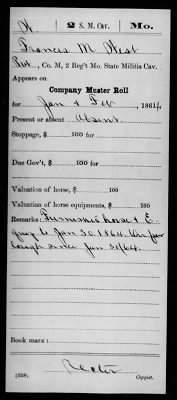 W. | 2 S. M. Cav. | Mo.
Francis M West
Pvt., Co. M, 2 Reg't Mo. State Militia Cav.
Appears on
Company Muster Roll
for Jan & Feb, 1864
Present or absent Absent
Stoppage, $ 100 for
Due Gov't, $ 100 for
Valuation of horse, $ 100
Valuation of horse equipments, $ 100
Remarks: Furnished horse & E
quip to Jan 30 1864. On fur
lough since Jan 30/64.
Book mark:
(358) Copyist.